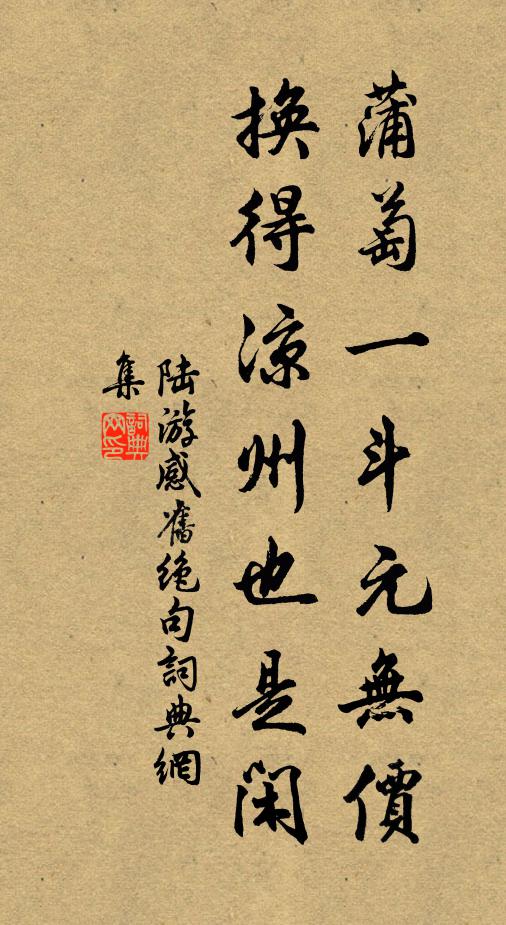 蒲萄一斗元無價
換得凉州也是閑
陆游感舊絶句詞典網
集
詞典
网印